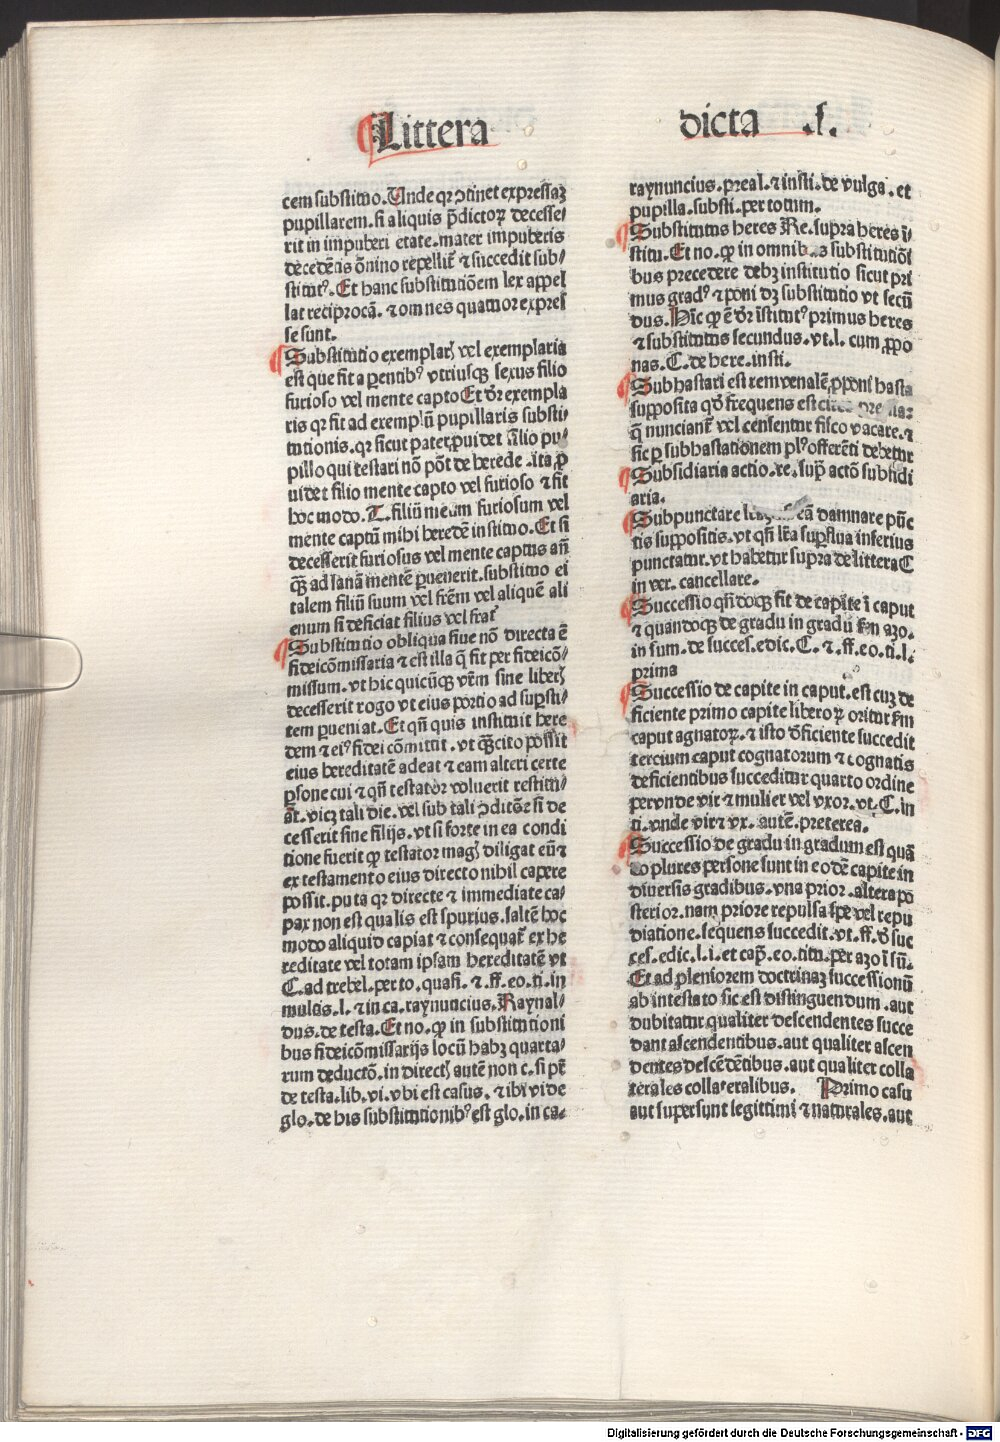 Littera dicta .S.
cem substituo. Unde qꝛ ꝯtinet expressaꝫ
pupillarem. si aliquis p̄dictoꝝ decesse⸗
rit in impuberi etate. mater impuberis
decedētis ōnino repellit̄ ⁊ succedit sub⸗
stitutꝰ. Et hanc substitutiōem lex appel
lat reciprocā. ⁊ omnes quatuor expres
se sunt.
Substitutio exemplaris vel exemplaria
est que fit a parentibꝰ vtriusqꝫ sexus filio
furioso vel mente capto Et dr̄ exempla
ris qꝛ fit ad exemplū pupillaris substi⸗
tutionis. qꝛ sicut pater ꝓuidet filio pu⸗
pillo qui testari nō pōt de herede. ita ꝓ
uidet filio mente capto vel furioso ⁊ fit
hoc modo. T. filiū meum furiosum vel
mente captū mihi heredē instituo. Et si
decesserit furiosus vel mente captus añ
qꝫ̄ ad sanā mentē ꝑuenerit. substituo ei
talem filiū suum vel frēm vel aliquē ali
enum si deficiat filius vel frat̄
Substitutio obliqua siue nō directa ē
fideicōmissaria ⁊ est illa q̄ fit per fideicō⸗
missum. vt hic quicūqꝫ vr̄m sine liberis
decesserit rogo vt eius portio ad suꝑsti⸗
tem ꝑueniat. Et qn̄ quis instituit here
dem ⁊ eiꝰ fidei cōmittit. vt qꝫ̄cito possit
eius hereditatē adeat ⁊ eam alteri certe
ꝑsone cui ⁊ qn̄ testator voluerit restitu⸗
at. vicꝫ tali die. vel sub tali ꝯditōe si de
cesserit sine filijs. vt si forte in ea condi
tione fuerit ꝙ testator magis diligat eū ⁊
ex testamento eius directo nihil capere
possit. puta qꝛ directe ⁊ immediate ca⸗
pax non est qualis est spurius. saltē hoc
modo aliquid capiat ⁊ consequat̄ ex he
reditate vel totam ipsam hereditatē vt
C. ad trebel. per to. quasi. ⁊ .ff. eo. ti. in
multis. l. ⁊ in ca. raynuncius. Raynal⸗
dus. de testa. Et no. ꝙ in substitutioni
bus fideicōmissarijs locū habꝫ quarta⸗
rum deductō. in directis autē non c. si pr̄
de testa. lib. vi. vbi est casus. ⁊ ibi vide
glo. de his substitutionibꝰ est glo. in ca⸗
raynuncius. preal. ⁊ insti. de vulga. et
pupilla. substi. per totum.
Substitutus heres Re. supra heres ī⸗
stitu. Et no. ꝙ in omnibus substitutiōi
bus precedere debꝫ institutio sicut pri
mus gradꝰ ⁊ poni dꝫ substitutio vt secū
dus. Hīc ꝙ ē dr̄ īstitutꝰ primus heres
⁊ substitutus secundus. vt. l. cum ꝓpo
nas. C. de here. insti.
Subhastari est rem venalē ꝓponi hasta
supposita qd̄ frequens est circa
q̄ nunciant̄ vel censentur fisco vacare. ⁊
sic ꝑ subhastationem plꝰ offerēti debetur
Subsidiaria actio. re. supͣ actō subsidi
aria.
Subpunctare damnare pūc
tis suppositis. vt qn̄ lr̄a suꝑflua inferius
punctatur. vt habetur supra de littera C
in ver. cancellare.
Successio qn̄doqꝫ fit de capite ī caput
⁊ quandoqꝫ de gradu in gradū fm̄ azo.
in sum. de succes. edic. C. ⁊ .ff. eo. ti. l.
prima
Successio de capite in caput. est cuꝫ de
ficiente primo capite liberoꝝ oritur fm̄
caput agnatoꝝ. ⁊ isto dficiente succedit
tercium caput cognatorum ⁊ cognatis
deficientibus succeditur quarto ordine
per vnde vir ⁊ mulier vel vxor. vt. C. in
ti. vnde vir ⁊ vx. autē. preterea.
Successio de gradu in gradum est quā
do plures persone sunt in eodē capite in
diuersis gradibus. vna prior. altera po
sterior. nam priore repulsa sepe vel repu
diatione. sequens succedit. vt. ff. d̄ suc
ces. edic. l. i. et cap̄. eo. titu. per azo ī sū.
Et ad pleniorem doctrinaꝫ successionū
ab intestato sic est distinguendum. aut
dubitatur qualiter descendentes succe
dant ascendentibus. aut qualiter ascen
dentes descēdētibus. aut qualiter colla
terales collateralibus. Primo casu
aut supersunt legittimi ⁊ naturales. aut
Digitalisierung gefördert durch die Deutsche Forschungsgemeinschaft - DFG